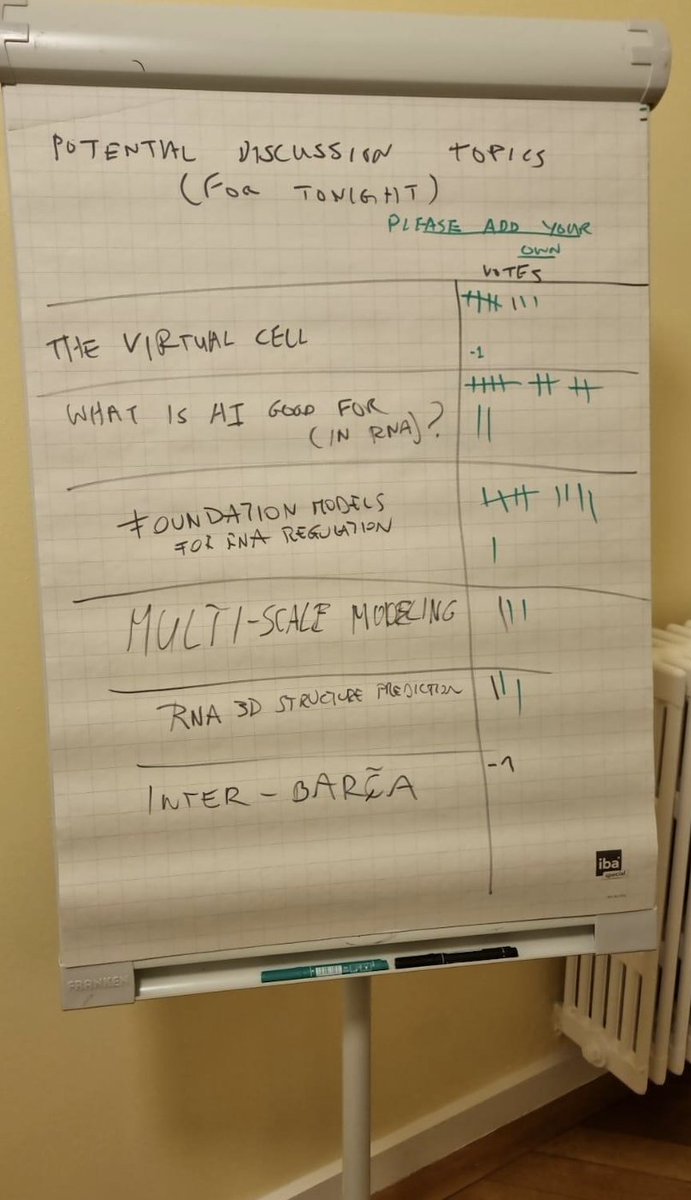 POTENTIAL DISCUSSION TOPICS
(FOR TONIGHT)
PLEASE ADD YOUR
OWN
VOTES
THE VIRTUAL CELL
-1
WHAT IS AI GOOD FOR
(IN RNA)?
FOUNDATION MODELS
FOR RNA REGULATION
MULTI-SCALE MODELING
RNA 3D STRUCTURE PREDICTION
INTER - BARÇA
-1
iba
special
FRANKEN